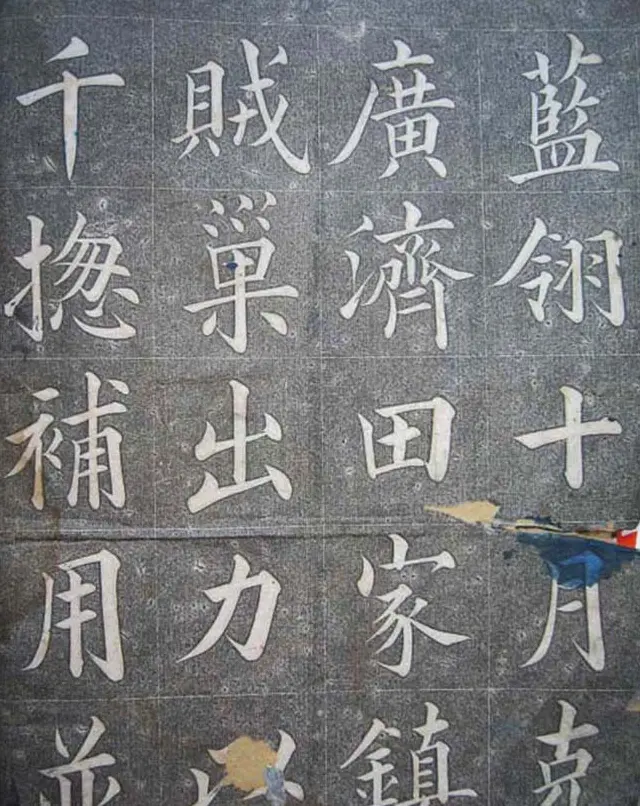 藍翎十月克
廣濟田家鎮
賊巢出力以
千揔補用並